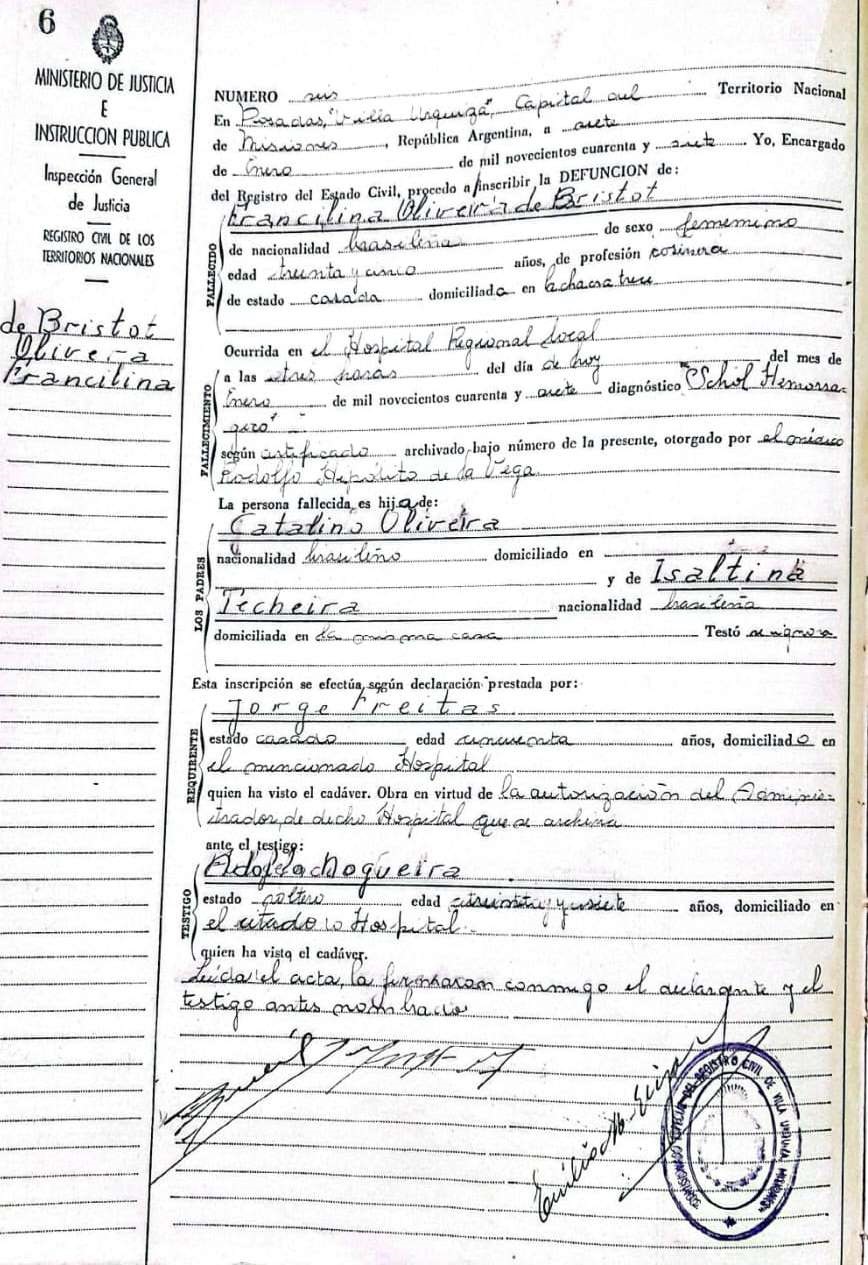 6
MINISTERIO DE JUSTICIA
E
INSTRUCCION PUBLICA
Inspección General
de Justicia
REGISTRO CIVIL DE LOS
TERRITORIOS NACIONALES
de Bristot
Olivera
Francilina
NUMERO seis
En Posadas, "Villa Urquiza", Capital del Territorio Nacional
de Misiones, República Argentina, a siete
de Enero de mil novecientos cuarenta y siete Yo, Encargado
del Registro del Estado Civil, procedo a inscribir la DEFUNCION de:
Francilina Oliveira de Bristot
FALLECIDO
de nacionalidad brasileña de sexo femenino
edad treinta y cinco años, de profesión cosinera
de estado casada domiciliada en la chacra trece
Ocurrida en el Hospital Regional local
FALLECIMIENTO
a las tres horas del día de hoy del mes de
Enero de mil novecientos cuarenta y siete diagnóstico "Schol Hemorra-
gico"
según certificado archivado bajo número de la presente, otorgado por el médico
Rodolfo Hipólito de la Vega
La persona fallecida es hija de:
Catalino Oliveira
LOS PADRES
nacionalidad brasileño domiciliado en
y de Isaltina
Techeira nacionalidad brasileña
domiciliada en la misma casa Testó se ignora
Esta inscripción se efectúa según declaración prestada por:
Jorge Freitas
REQUIRENTE
estado casado edad cincuenta años, domiciliado en
el mencionado Hospital
quien ha visto el cadáver. Obra en virtud de la autorización del Adminis-
trador de dicho Hospital que se archiva
ante el testigo:
Adolfo Nogueira
TESTIGO
estado soltero edad treinta y siete años, domiciliado en
el citado Hospital.
quien ha visto el cadáver.
Leida el acta, la firmaron conmigo el declarante y el
testigo antes nombrado